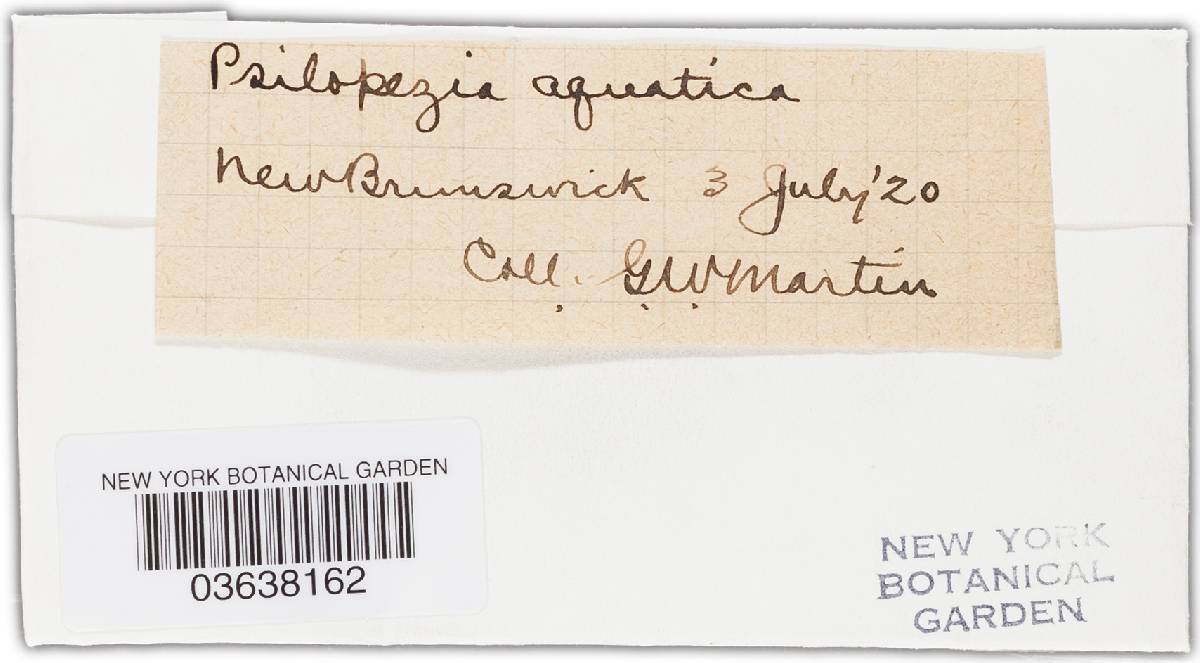 Psilopezia aquatica
New Brunswick 3 July '20
Coll. G.W. Martin
NEW YORK BOTANICAL GARDEN
03638162
NEW YORK
BOTANICAL
GARDEN